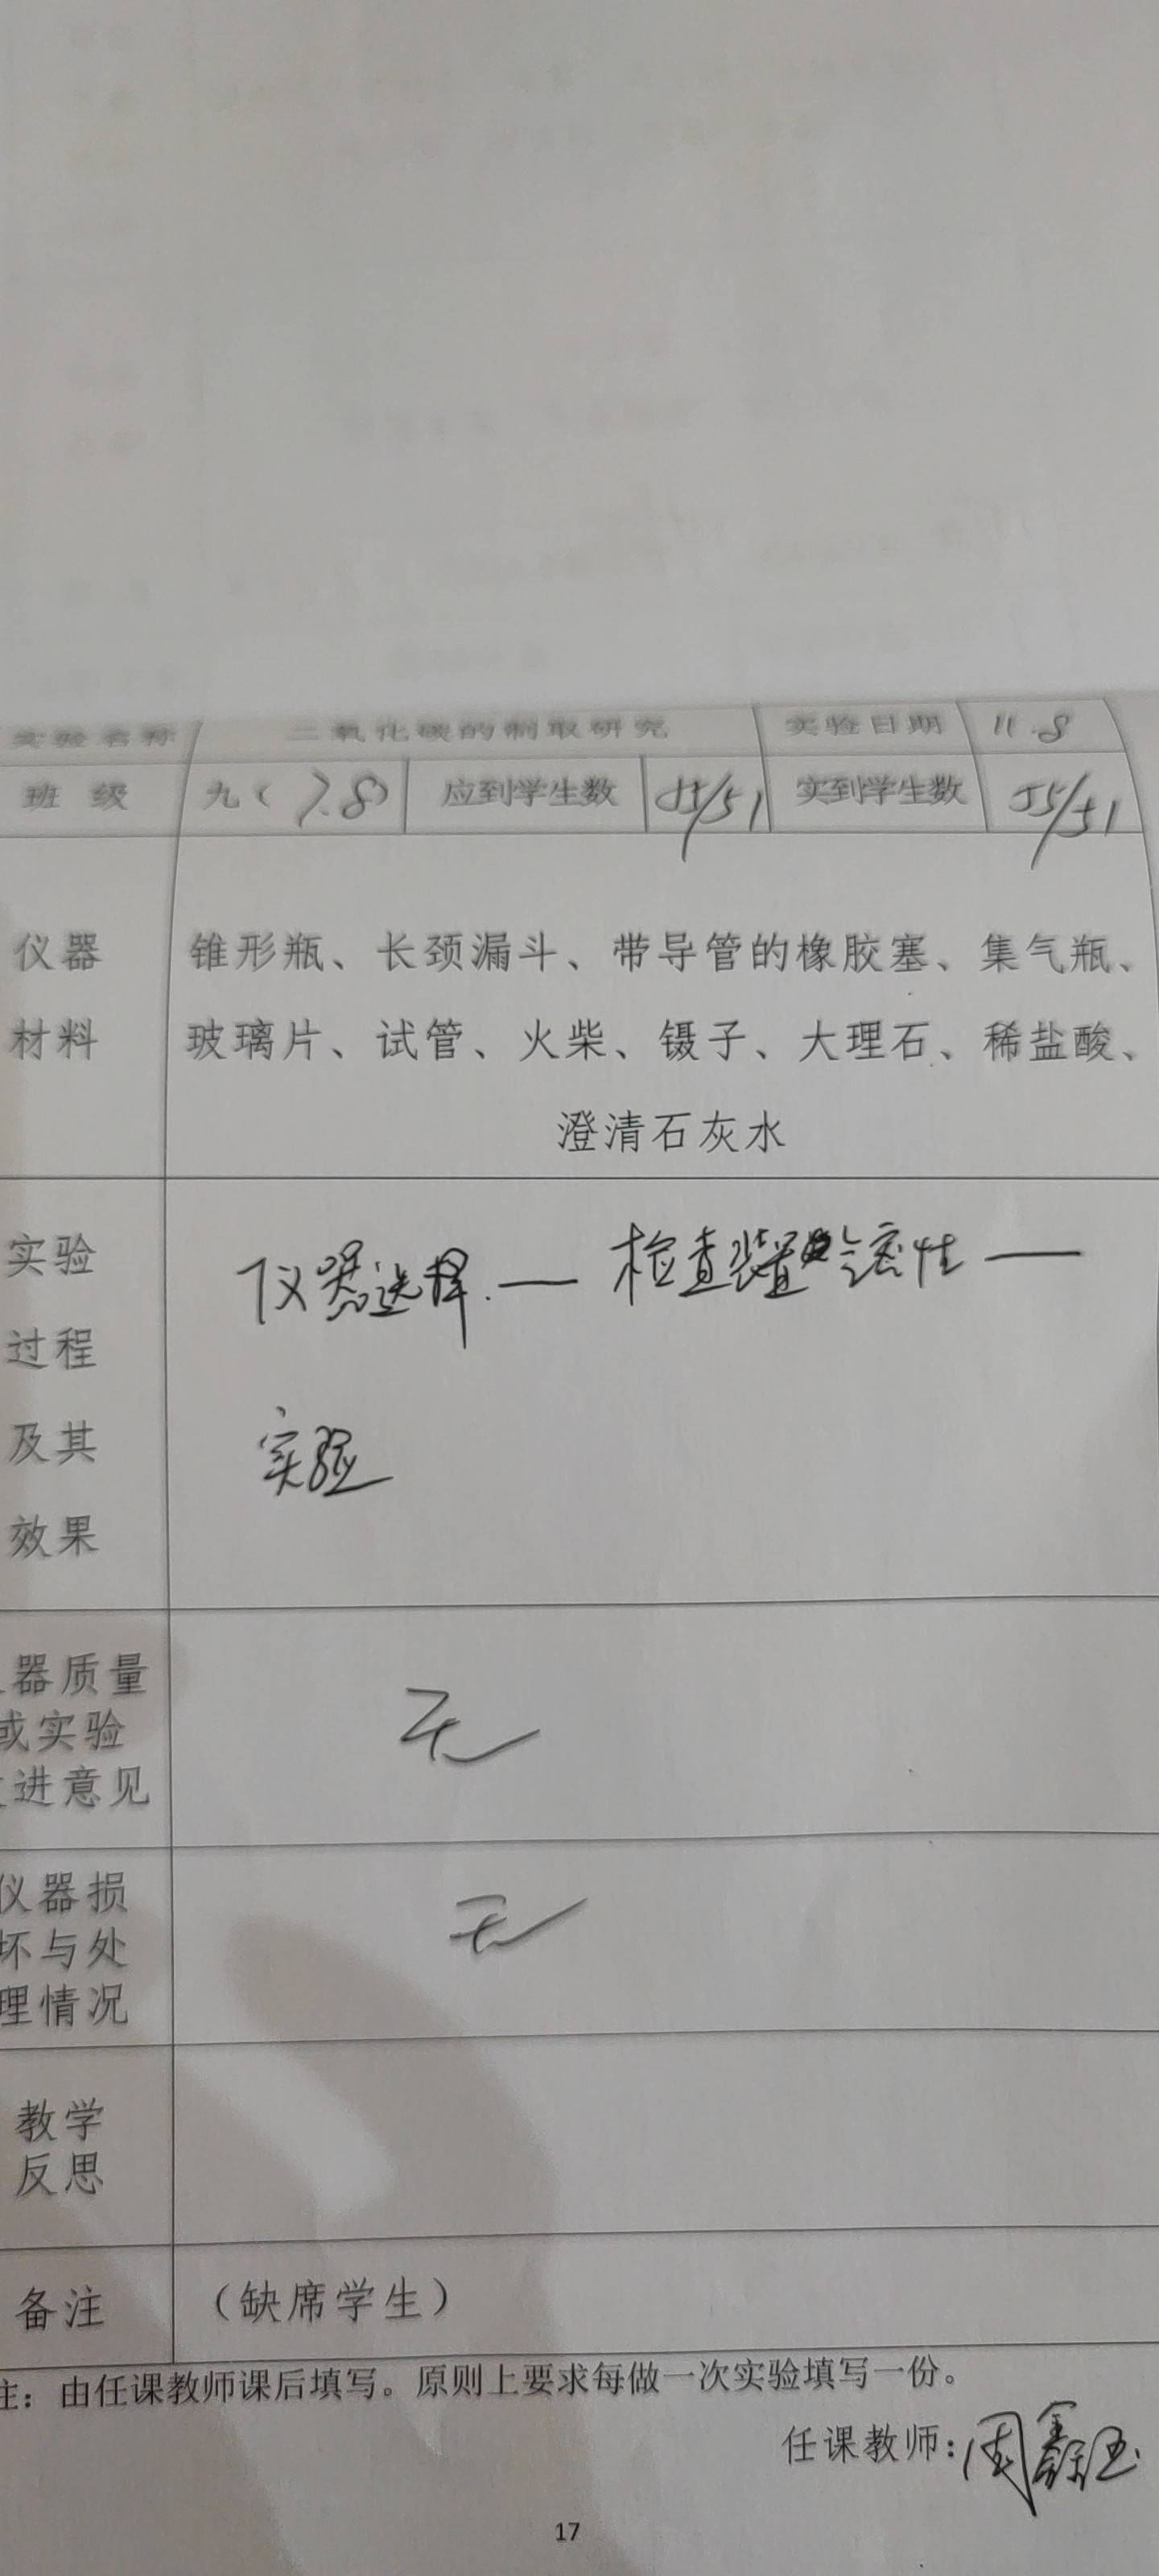 实验名称 二氧化碳的制取研究 实验日期 11.8
班 级 九（7.8） 应到学生数 55/51 实到学生数 55/51
仪器 锥形瓶、长颈漏斗、带导管的橡胶塞、集气瓶、
材料 玻璃片、试管、火柴、镊子、大理石、稀盐酸、
澄清石灰水
实验 仪器选择.—检查装置气密性—
过程
及其 实验
效果
器质量
或实验 无
进意见
仪器损 无
坏与处
理情况
教学
反思
备注 （缺席学生）
注：由任课教师课后填写。原则上要求每做一次实验填写一份。
任课教师：周鑫玉
17